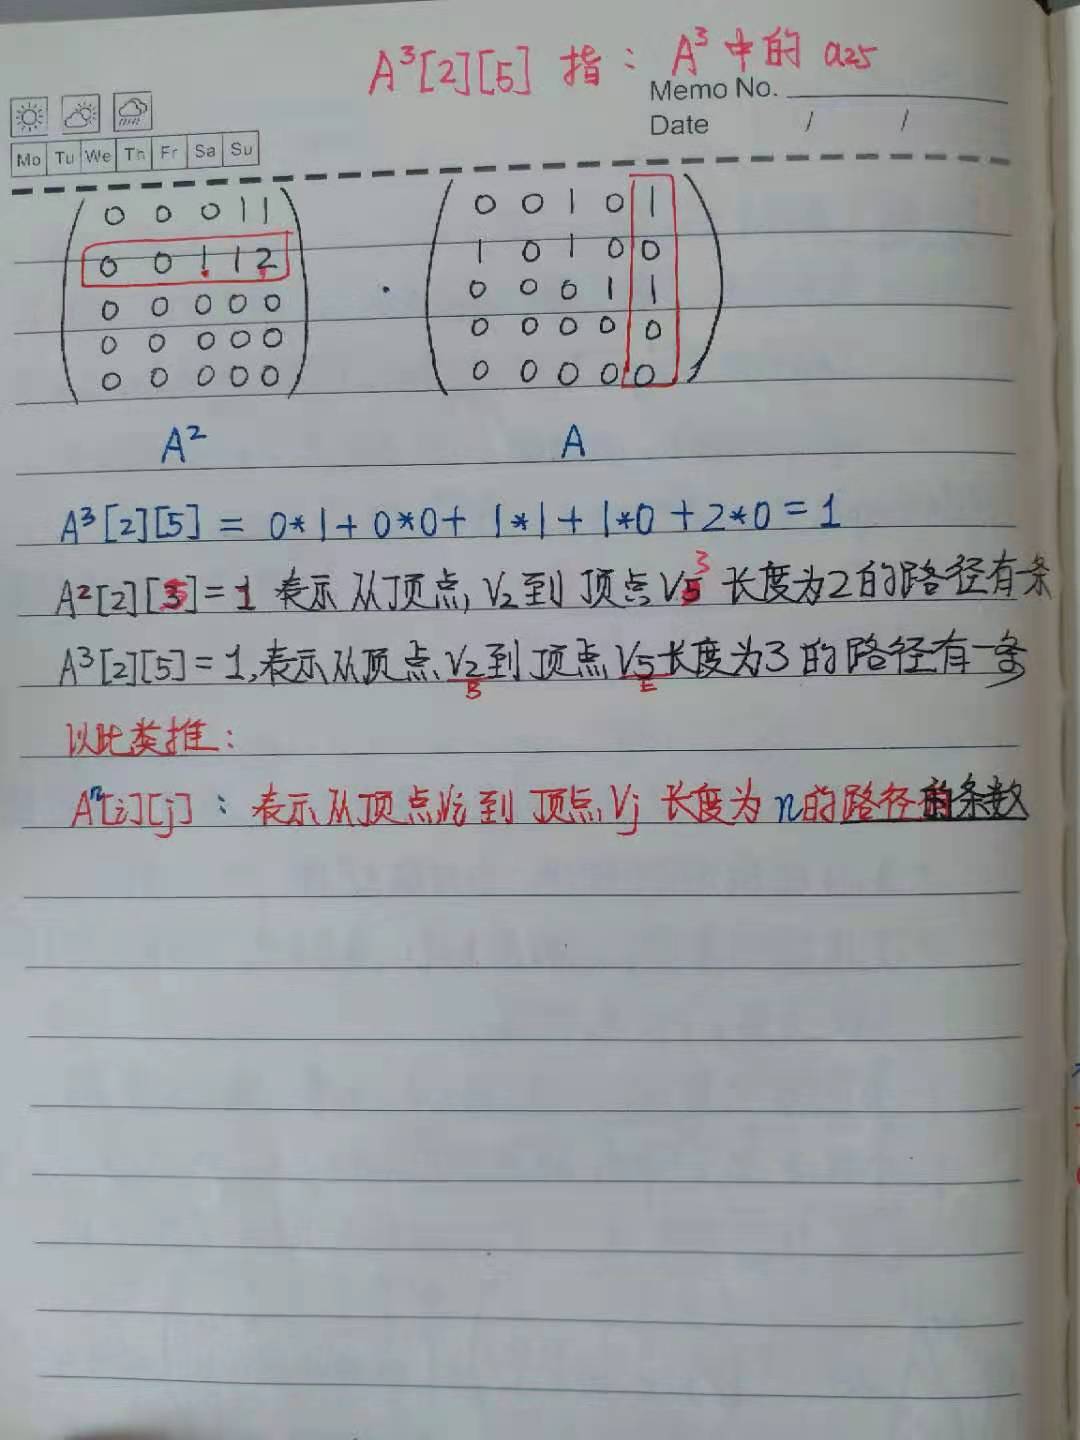 A³[2][5] 指：A³中的 a25
Memo No.
Date / /
Mo Tu We Th Fr Sa Su
0 0 0 1 1
0 0 1 1 2
0 0 0 0 0
0 0 0 0 0
0 0 0 0 0
·
0 0 1 0 1
1 0 1 0 0
0 0 0 1 1
0 0 0 0 0
0 0 0 0 0
A² A
A³[2][5] = 0*1+0*0+1*1+1*0+2*0=1
A²[2][3]=1 表示从顶点V2到顶点V3长度为2的路径有条
A³[2][5]=1,表示从顶点V2到顶点V5长度为3的路径有一条
B E
以此类推：
Aⁿ[i][j]：表示从顶点Vi到顶点Vj长度为n的路径的条数